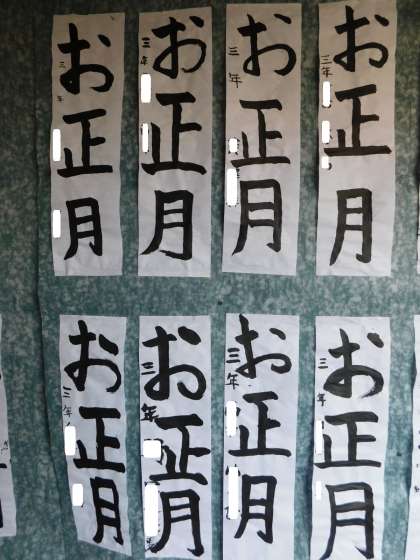 お正月
三年
お正月
三年
お正月
三年
お正月
三年
お正月
三年
お正月
三年
お正月
三年
お正月
三年